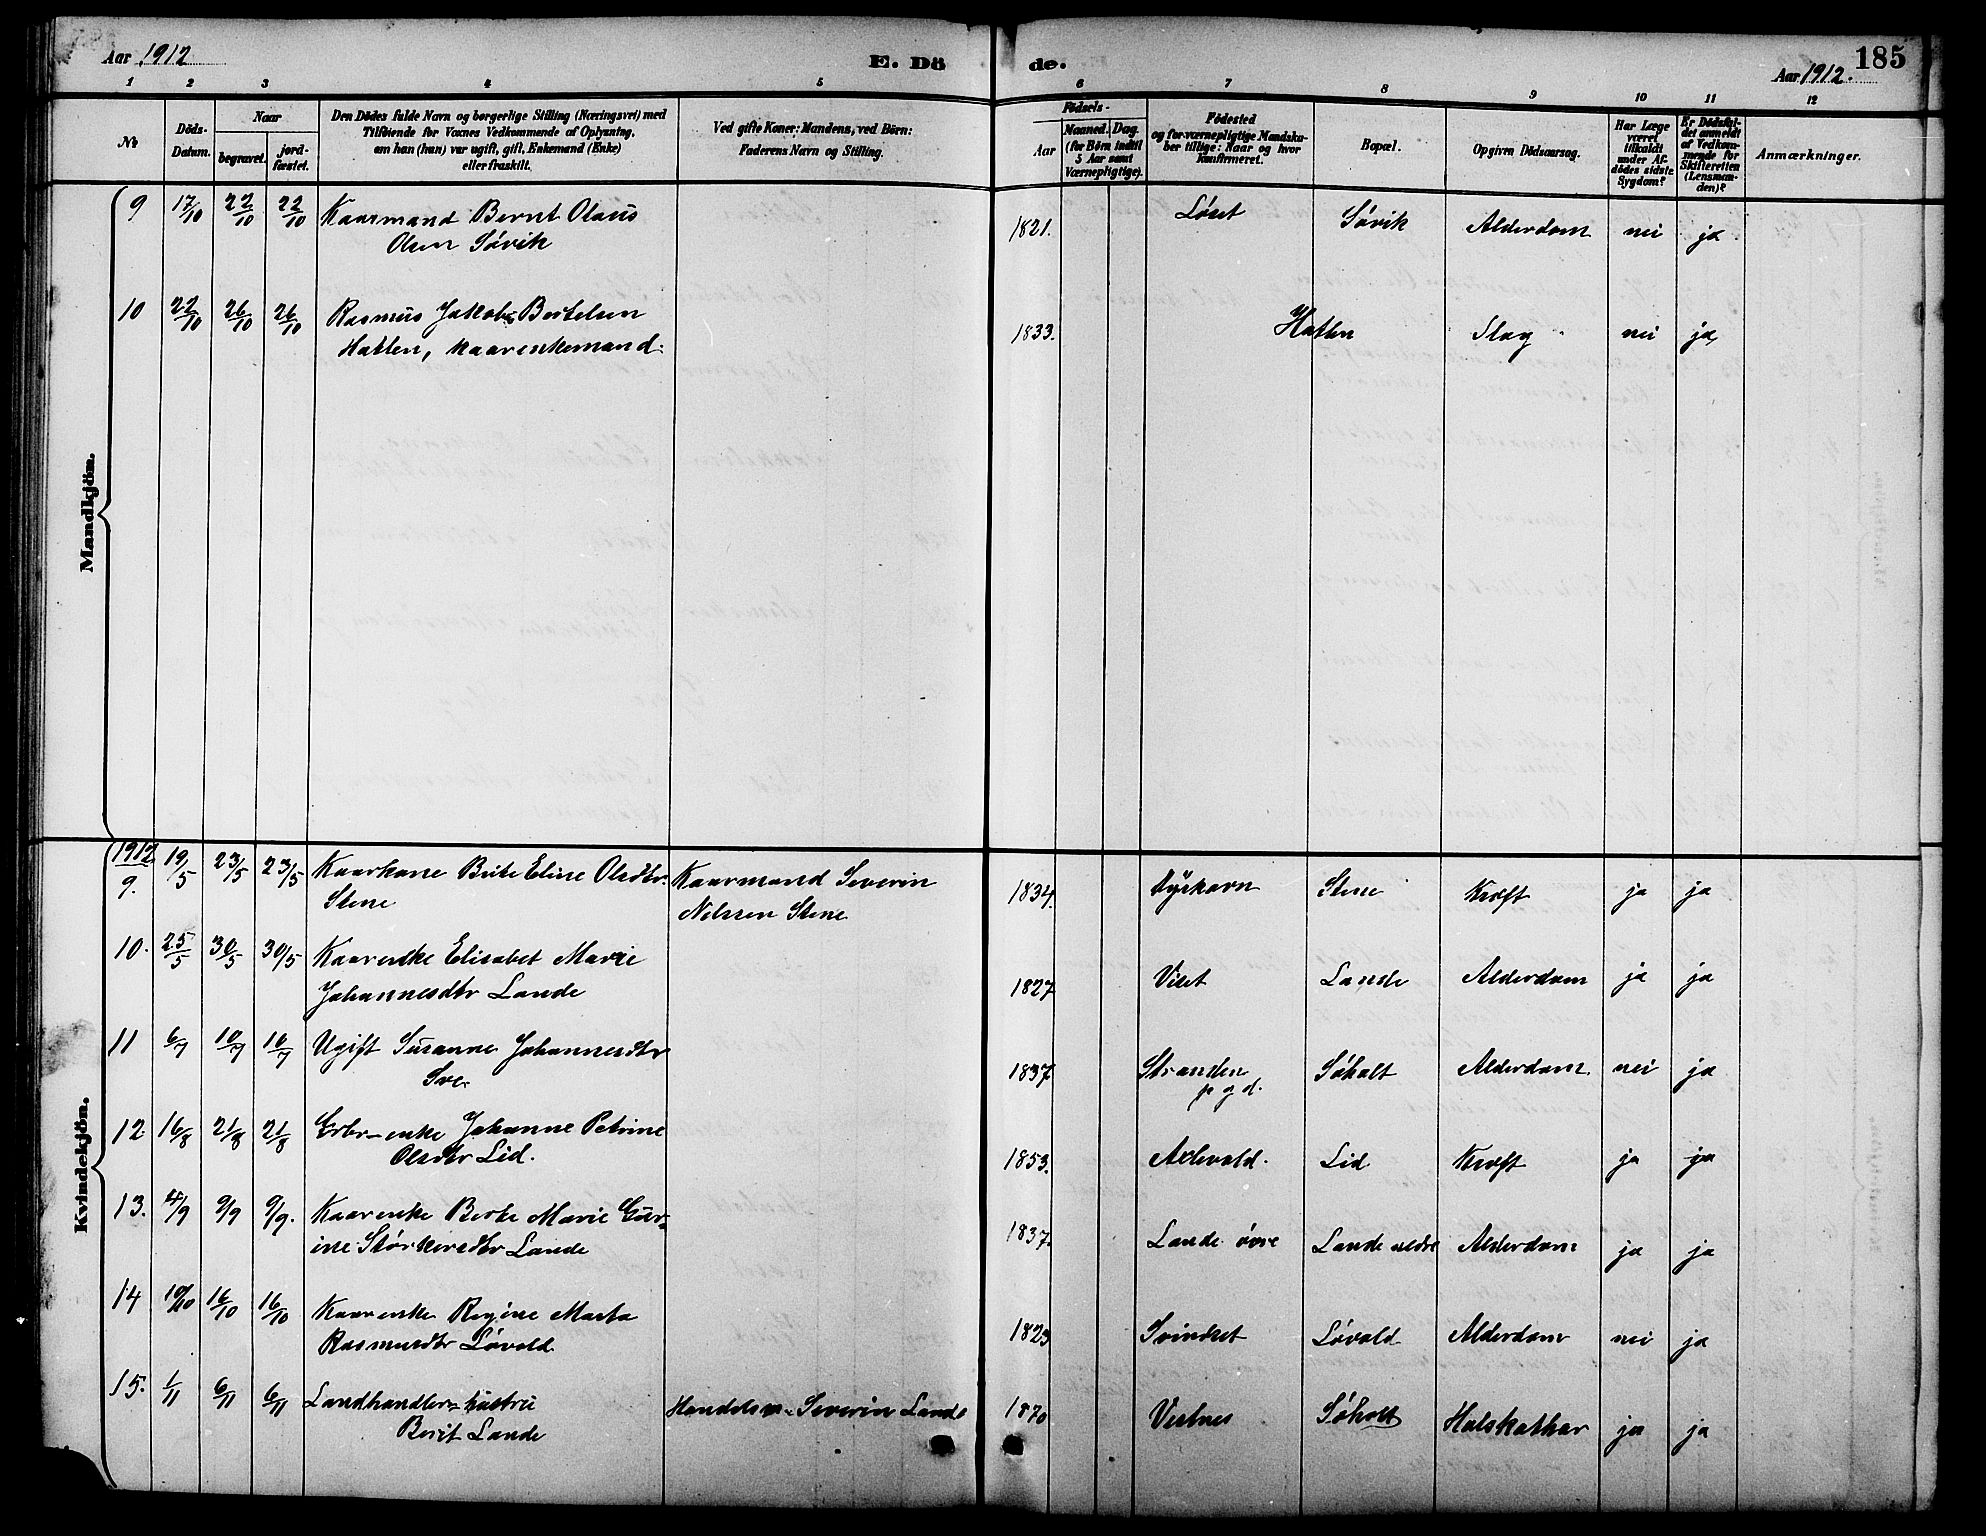 Aar 1912
E. Dö
de.
185
Aar 1912.
1 2 3 4 5 6 7 8 9 10 11 12
No
Döds-
Datum.
Naar
begravet.
jord-
fæstet.
Den Dödes fulde Navn og borgerlige Stilling (Næringsvei) med
Tilföiende for Voxnes Vedkommende af Oplysning,
om han (hun) var ugift, gift, Enkemand (Enke)
eller fraskilt.
Ved gifte Koner: Mandens, ved Börn:
Faderens Navn og Stilling.
Födsels-
Aar
Maaned. Dag.
(for Börn indtil
5 Aar samt
Værnepligtige).
Födested
og for værnepligtige Mandska-
ber tillige: Naar og hvor
konfirmeret.
Bopæl.
Opgiven Dödsaarsag.
Har Læge
været
tilkaldt
under Af-
dödes sidste
Sygdom?
Er Dödsfal-
det anmeldt
af Vedkom-
mende for
Skifteretten
(Lensman-
den)?
Anmærkninger.
Mandkjön.
9 17/10 22/10 22/10 Kaarmand Bernt Olaus
Olsen Søvik
1821. Løset Søvik Alderdom nei ja
10 22/10 26/10 26/10 Rasmus Jakob Bertelsen
Hatlen, kaarenkemand.
1833. Hatlen Slag nei ja
Kvindekjön.
1912
9. 19/5 23/5 23/5 Kaarkone Brite Eline Olsdtr. Kaarmand Severin
Stene Nelssen Stene
1834. Stene Kræft ja ja
10. 25/5 30/5 30/5 Kaarenke Elisabet Marie
Johannesdtr Lande
1827 Viset Lande Alderdom ja ja
11 6/7 10/7 10/7 Ugift Susanne Johannesdtr
1837 Stranden Søholt Alderdom nei ja
p g d.
12 16/8 21/8 21/8 Grbr-enke Johanne Petrine
Olsdtr Lid.
1853. Lid Kræft ja ja
13. 4/9 9/9 9/9. Kaarenke Berte Marie Gur-
ine Størkersdtr Lande
1837. Lande øvre Lande nedre Alderdom ja ja
14 10/10 16/10 16/10 Kaarenke Regine Marta
Rasmusdtr Løvold
1823 Svindset Løvold Alderdom nei ja
15. 1/11 6/11 6/11 Landhandler-hustru Handelsm. Severin Lande
Berit Lande
1870 Vestnes Søholt Halskathar ja ja